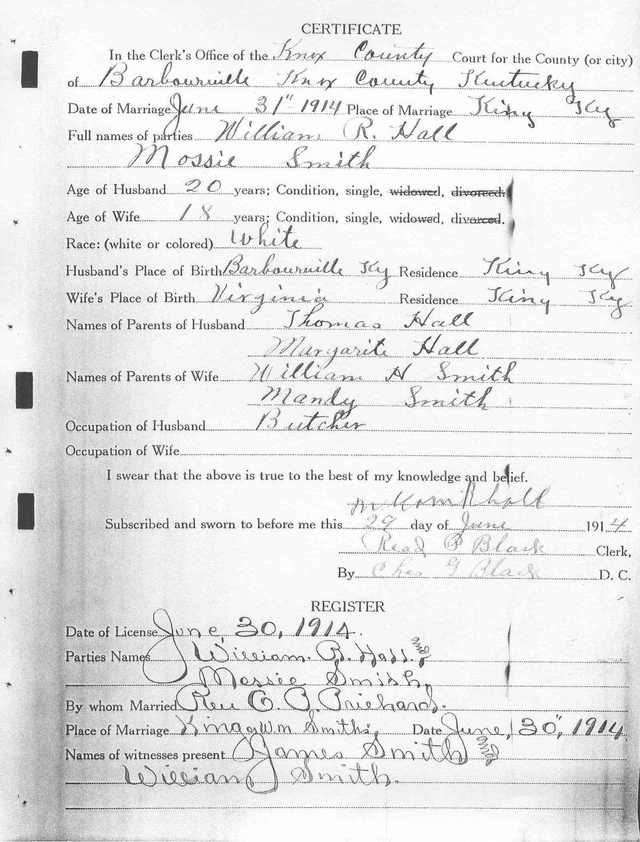 CERTIFICATE
In the Clerk's Office of the Knox County Court for the County (or city)
of Barbourville Knox County Kentucky
Date of Marriage June 31" 1914 Place of Marriage King Ky
Full names of parties William R. Hall
Mossie Smith
Age of Husband 20 years; Condition, single, widowed, divorced.
Age of Wife 18 years; Condition, single, widowed, divorced.
Race: (white or colored) White
Husband's Place of Birth Barbourville Ky Residence King Ky
Wife's Place of Birth Virginia Residence King Ky
Names of Parents of Husband Thomas Hall
Margarite Hall
Names of Parents of Wife William H Smith
Mandy Smith
Occupation of Husband Butcher
Occupation of Wife
I swear that the above is true to the best of my knowledge and belief.
Subscribed and sworn to before me this 29 day of June 1914
Read P Black Clerk,
By Chas G Black D. C.
REGISTER
Date of License June, 30, 1914.
Parties Names William. R. Hall. and
Mossie Smith.
By whom Married Rev Prichard.
Place of Marriage King Wm Smith's Date June, 30", 1914
Names of witnesses present James Smith and
William Smith.